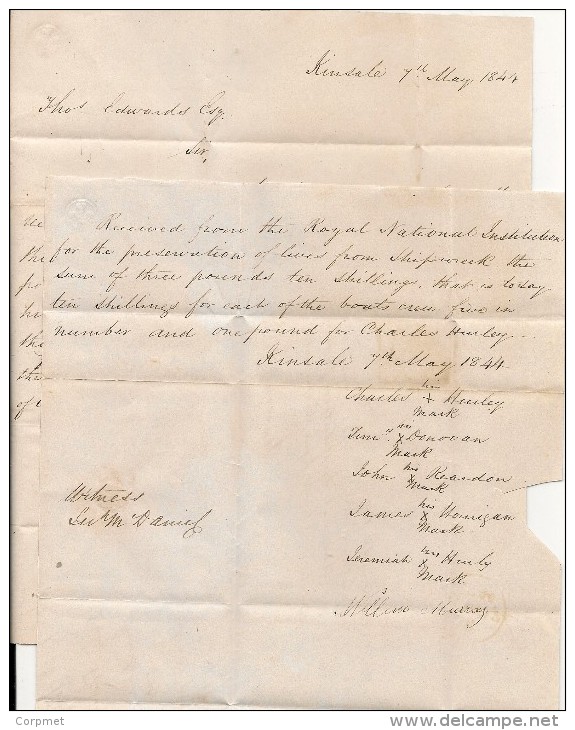 Kinsale 7th May 1844
Thos Edwards Esq.
Sir,
Received from the Royal National Institution
for the preservation of lives from shipwreck the
sum of three pounds ten shillings, that is to say
ten shillings for each of the boats crew five in
number and one pound for Charles Hurley
Kinsale 7th May 1844
Charles his X Hurley
Mark
his X Donovan
Mark
John his X Reardon
Mark
James his X
Mark
Jeremiah his X Hurly
Mark
Murray
Witness
McDaniel
the
the
of
Corpmet
www.delcampe.net